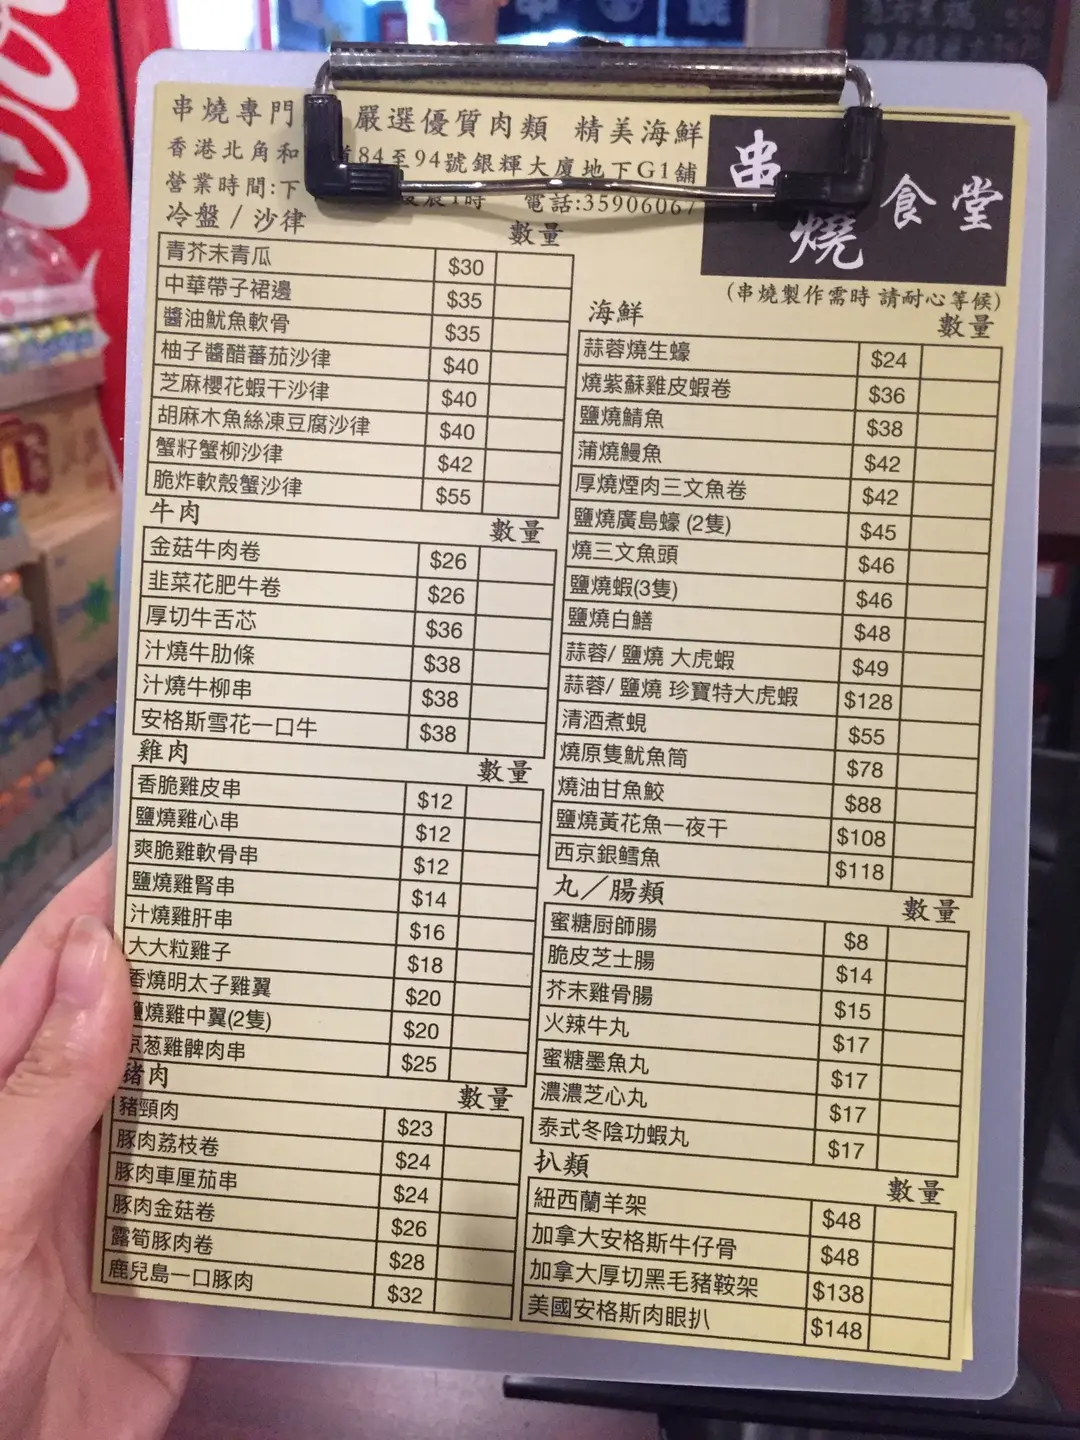 串燒專門 嚴選優質肉類 精美海鮮
香港北角和 道84至94號銀輝大廈地下G1舖
營業時間:下 晨1時 電話:35906067
串燒食堂
(串燒製作需時 請耐心等候)
冷盤 / 沙律 數量
青芥末青瓜 $30
中華帶子裙邊 $35
醬油魷魚軟骨 $35
柚子醬醋蕃茄沙律 $40
芝麻櫻花蝦干沙律 $40
胡麻木魚絲凍豆腐沙律 $40
蟹籽蟹柳沙律 $42
脆炸軟殼蟹沙律 $55
牛肉 數量
金菇牛肉卷 $26
韭菜花肥牛卷 $26
厚切牛舌芯 $36
汁燒牛肋條 $38
汁燒牛柳串 $38
安格斯雪花一口牛 $38
雞肉 數量
香脆雞皮串 $12
鹽燒雞心串 $12
爽脆雞軟骨串 $12
鹽燒雞腎串 $14
汁燒雞肝串 $16
大大粒雞子 $18
香燒明太子雞翼 $20
鹽燒雞中翼(2隻) $20
京葱雞髀肉串 $25
豬肉 數量
豬頸肉 $23
豚肉荔枝卷 $24
豚肉車厘茄串 $24
豚肉金菇卷 $26
露筍豚肉卷 $28
鹿兒島一口豚肉 $32
海鮮 數量
蒜蓉燒生蠔 $24
燒紫蘇雞皮蝦卷 $36
鹽燒鯖魚 $38
蒲燒鰻魚 $42
厚燒煙肉三文魚卷 $42
鹽燒廣島蠔 (2隻) $45
燒三文魚頭 $46
鹽燒蝦(3隻) $46
鹽燒白鱔 $48
蒜蓉/ 鹽燒 大虎蝦 $49
蒜蓉/ 鹽燒 珍寶特大虎蝦 $128
清酒煮蜆 $55
燒原隻魷魚筒 $78
燒油甘魚鮫 $88
鹽燒黃花魚一夜干 $108
西京銀鱈魚 $118
丸／腸類 數量
蜜糖厨師腸 $8
脆皮芝士腸 $14
芥末雞骨腸 $15
火辣牛丸 $17
蜜糖墨魚丸 $17
濃濃芝心丸 $17
泰式冬陰功蝦丸 $17
扒類 數量
紐西蘭羊架 $48
加拿大安格斯牛仔骨 $48
加拿大厚切黑毛豬鞍架 $138
美國安格斯肉眼扒 $148